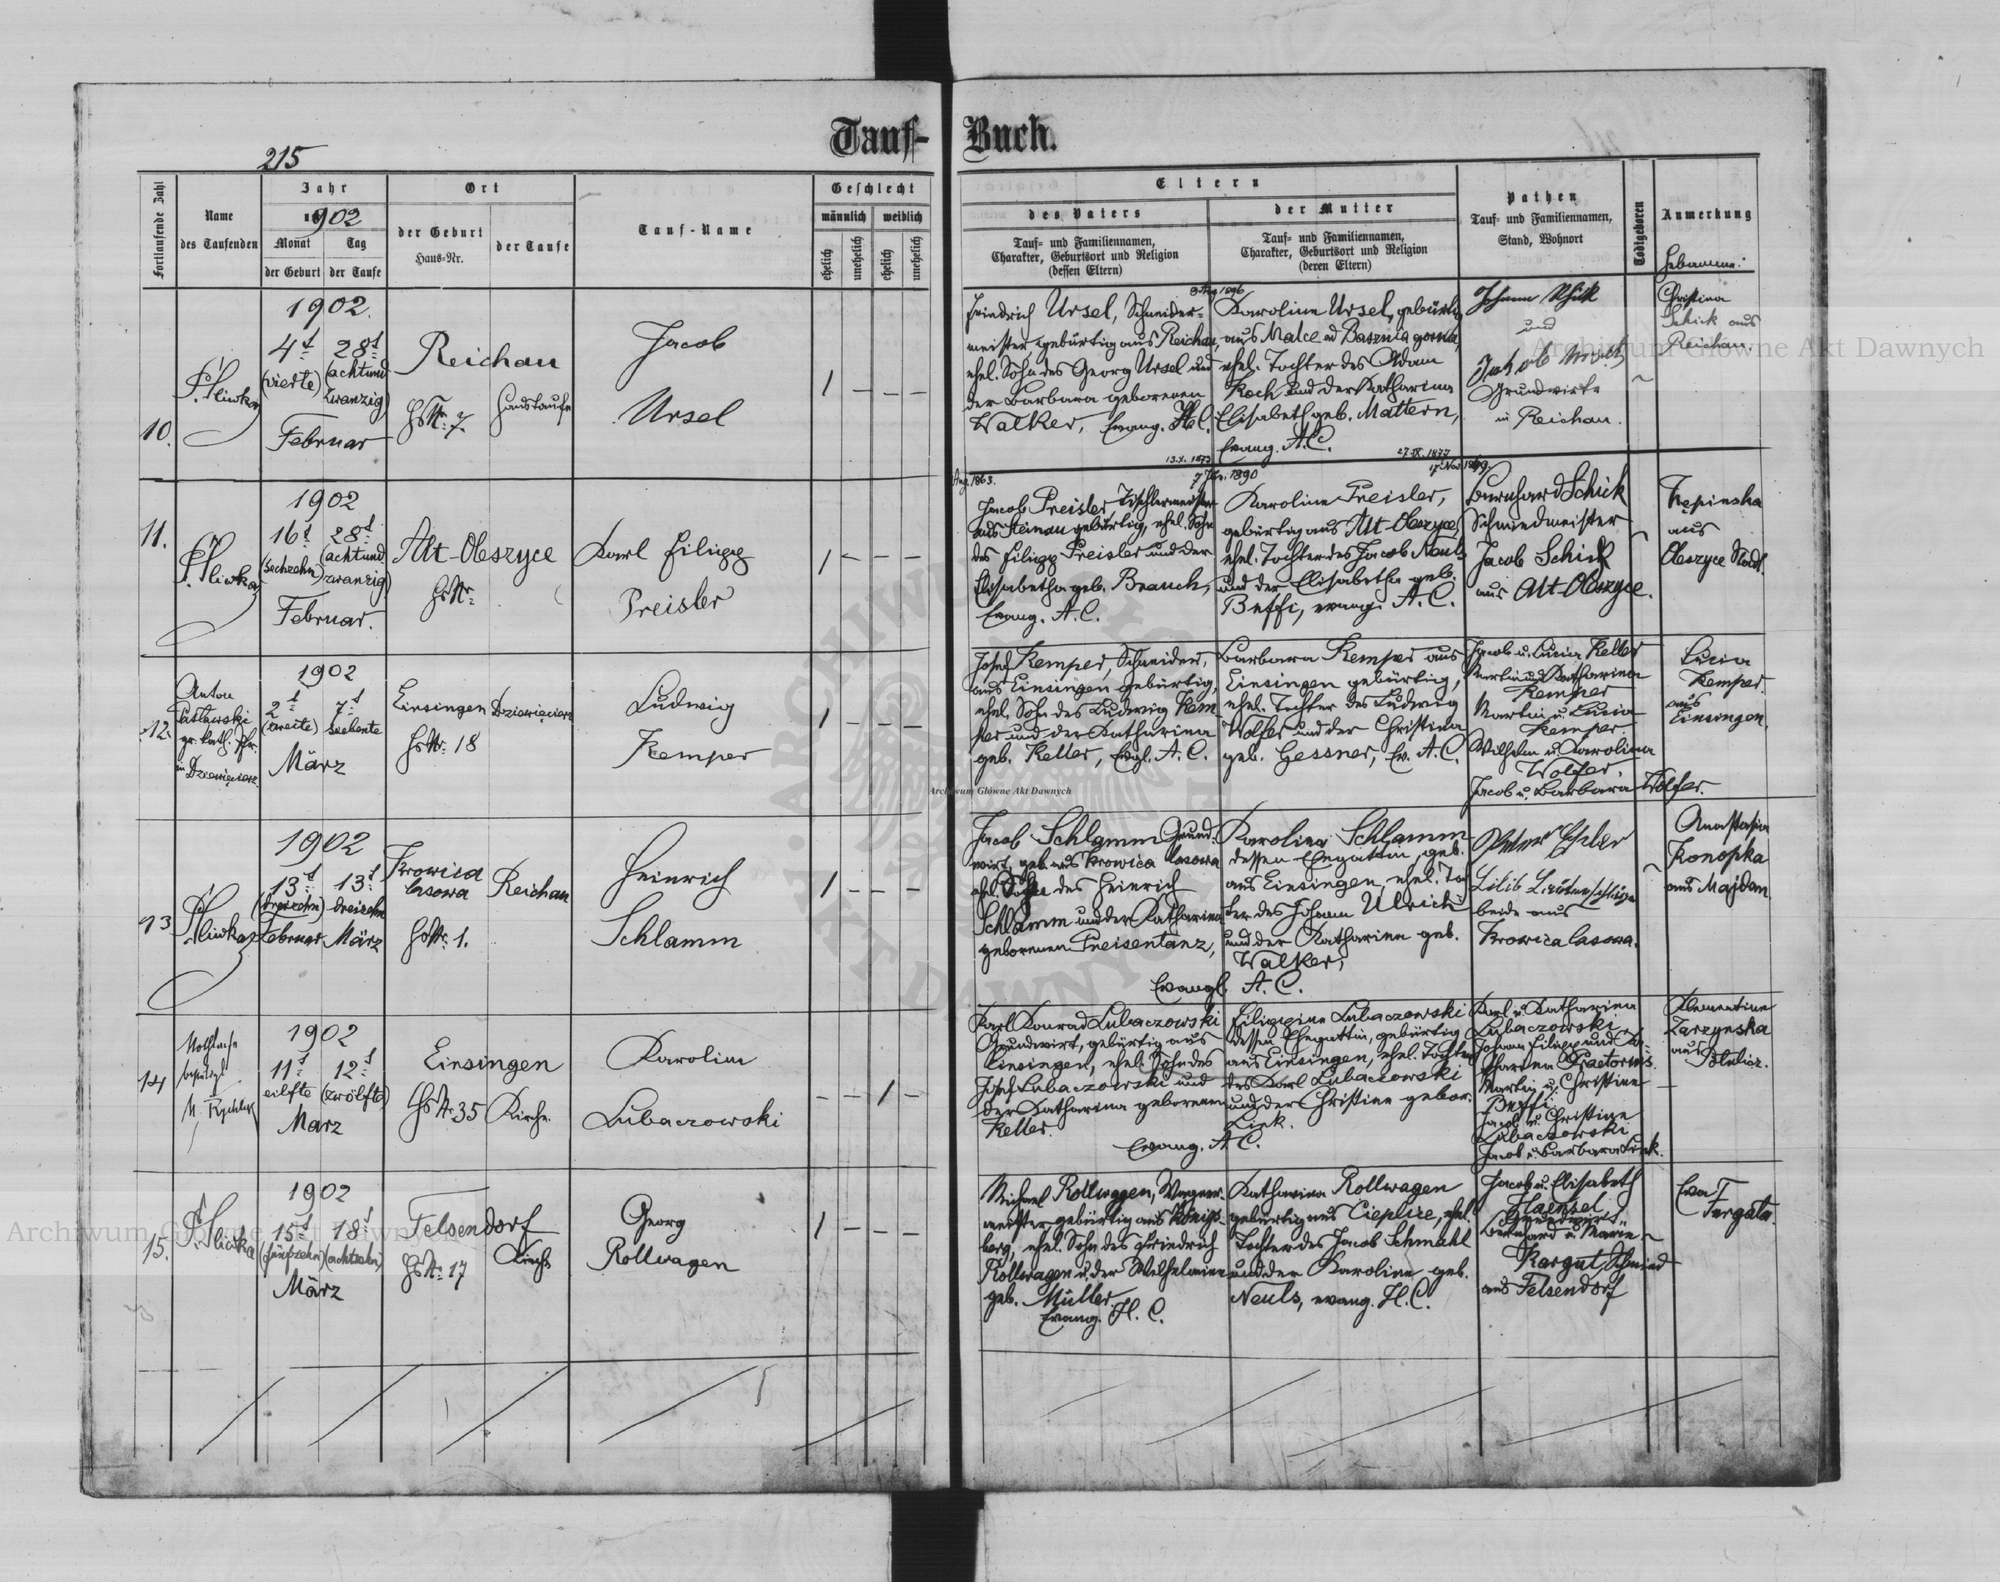 Tauf-Buch.
215
Fortlaufende Zahl
Name
des Taufenden
Jahr
1902
Monat
Tag
der Geburt
der Taufe
Ort
der Geburt
Haus-Nr.
der Taufe
Tauf-Name
Geschlecht
männlich
weiblich
ehelich
unehelich
ehelich
unehelich
Eltern
des Vaters
Tauf- und Familiennamen,
Charakter, Geburtsort und Religion
(dessen Eltern)
der Mutter
Tauf- und Familiennamen,
Charakter, Geburtsort und Religion
(deren Eltern)
Pathen
Tauf- und Familiennamen,
Stand, Wohnort
Todtgeboren
Anmerkung
Hebamme:
10.
1902.
4t 28t
(vierte) (achtund
zwanzig)
Februar
Reichau
HsNr. 7.
Haustaufe
Jacob
Ursel
1 – – –
Friedrich Ursel, Schneider-
meister gebürtig aus Reichau,
ehel. Sohn des Georg Ursel und
der Barbara geborenen
Walker, Evang. H.C.
Karoline Ursel, gebürtig
aus Malce ad Basznia gorna,
ehel. Tochter des Adam
Koch und der Katharina
Elisabeth geb. Mattern,
Evang. A.C.
Johann Schick
und
Jakob
Grundwirte
in Reichau.
Christina
Schick aus
Reichau.
11.
1902
16t 28t
(sechzehn) (achtund
zwanzig)
Februar.
Alt-Oleszyce
HsNr.
Karl Filipp
Preisler
1 – – –
Aug. 1863.
13.X. 1873
27.IX. 1877
Jacob Preisler, Tischlermeister
aus Steinau gebürtig, ehel. Sohn
des Filipp Preisler und der
Elisabetha geb. Brauch,
Evang. A.C.
Karoline Preisler,
gebürtig aus Alt-Oleszyce
ehel. Tochter des Jacob Neuls
und der Elisabetha geb.
Beffi, evang. A.C.
Bernhard Schick
Schmiedmeister
Jacob Schick
aus Alt-Oleszyce.
Rzepinska
aus
Oleszyce Stadt.
12.
Anton
gr. kath. Pfr.
in Dziewięcierz
1902
2t 7t
(zweite) siebente
März
Einsingen
HsNr. 18
Dziewięcierz
Ludwig
Kemper
1 – – –
Josef Kemper, Schneider,
aus Einsingen gebürtig,
ehel. Sohn des Ludwig Kem
per und der Katharina
geb. Keller, Evgl. A.C.
Barbara Kemper aus
Einsingen gebürtig,
ehel. Tochter des Ludwig
Wolfer und der Christina
geb. Gessner, Ev. A.C.
Jacob u. Lucia Keller
Martin und Katharina
Kemper
Martin u. Lucia
Kemper.
Wilhelm u. Karolina
Wolfer.
Jacob u. Barbara Wolfer.
Lucia
Kemper
aus
Einsingen.
13
1902
13t 13t
(dreizehn) dreizehn
Februar März
Krowica
lasowa
HsNr. 1.
Reichau
Heinrich
Schlamm
1 – – –
Jacob Schlamm Grund-
wirt, geb. aus Krowica lasowa
ehel. Sohn des Heinrich
Schlamm und der Katharina
geborenen Preisentanz,
Karolina Schlamm
dessen Ehegattin, geb.
aus Einsingen, ehel. Toch
ter des Johann Ulrich
und der Katharina geb.
Walker,
Evangl. A.C.
beide aus
Krowica lasowa.
Anastasia
Konopka
aus Majdan
14
1902
11t 12t
eilfte (zwölfte)
März
Einsingen
HsNr 35 Kirche.
Karolin
Lubaczowski
– – 1 –
Karl Konrad Lubaczowski
Grundwirt, gebürtig aus
Einsingen, ehel. Sohn des
Josef Lubaczowski und
der Katharina geborenen
Keller.
Filippine Lubaczowski
dessen Ehegattin, gebürtig
aus Einsingen, ehel. Tochter
des Karl Lubaczowski
und der Christine gebor.
Link.
Evang. A.C.
Karl u. Katharina
Lubaczowski
Johann Filipp und Ka-
tharina Praetorius.
Martin u. Christine
Beffi
Jacob u. Christine
Lubaczowski
Jacob u. Barbara Link.
Klementine
Zarzynska
aus
15.
1902
15t 18t
(fünfzehn) (achtzehn)
März
Felsendorf
HsNr. 17
Kirche
Georg
Rollwagen
1 – – –
Michael Rollwagen, Wagner-
meister, gebürtig aus Königs-
berg, ehel. Sohn des Friedrich
Rollwagen u. der Wilhelmine
geb. Müller
Evang. H. C.
Katharina Rollwagen
gebürtig aus Cieplice, ehel.
Tochter des Jacob Schmahl
und der Karoline geb.
Neuls, evang. H.C.
Jacob u. Elisabeth
Haensel,
Grundwirt
Bernhard u. Marie
Kargut, Schmied
aus Felsendorf
Eva
Fergata
Archiwum Główne Akt Dawnych
Archiwum Główne Akt Dawnych
Archiwum Główne Akt Dawnych